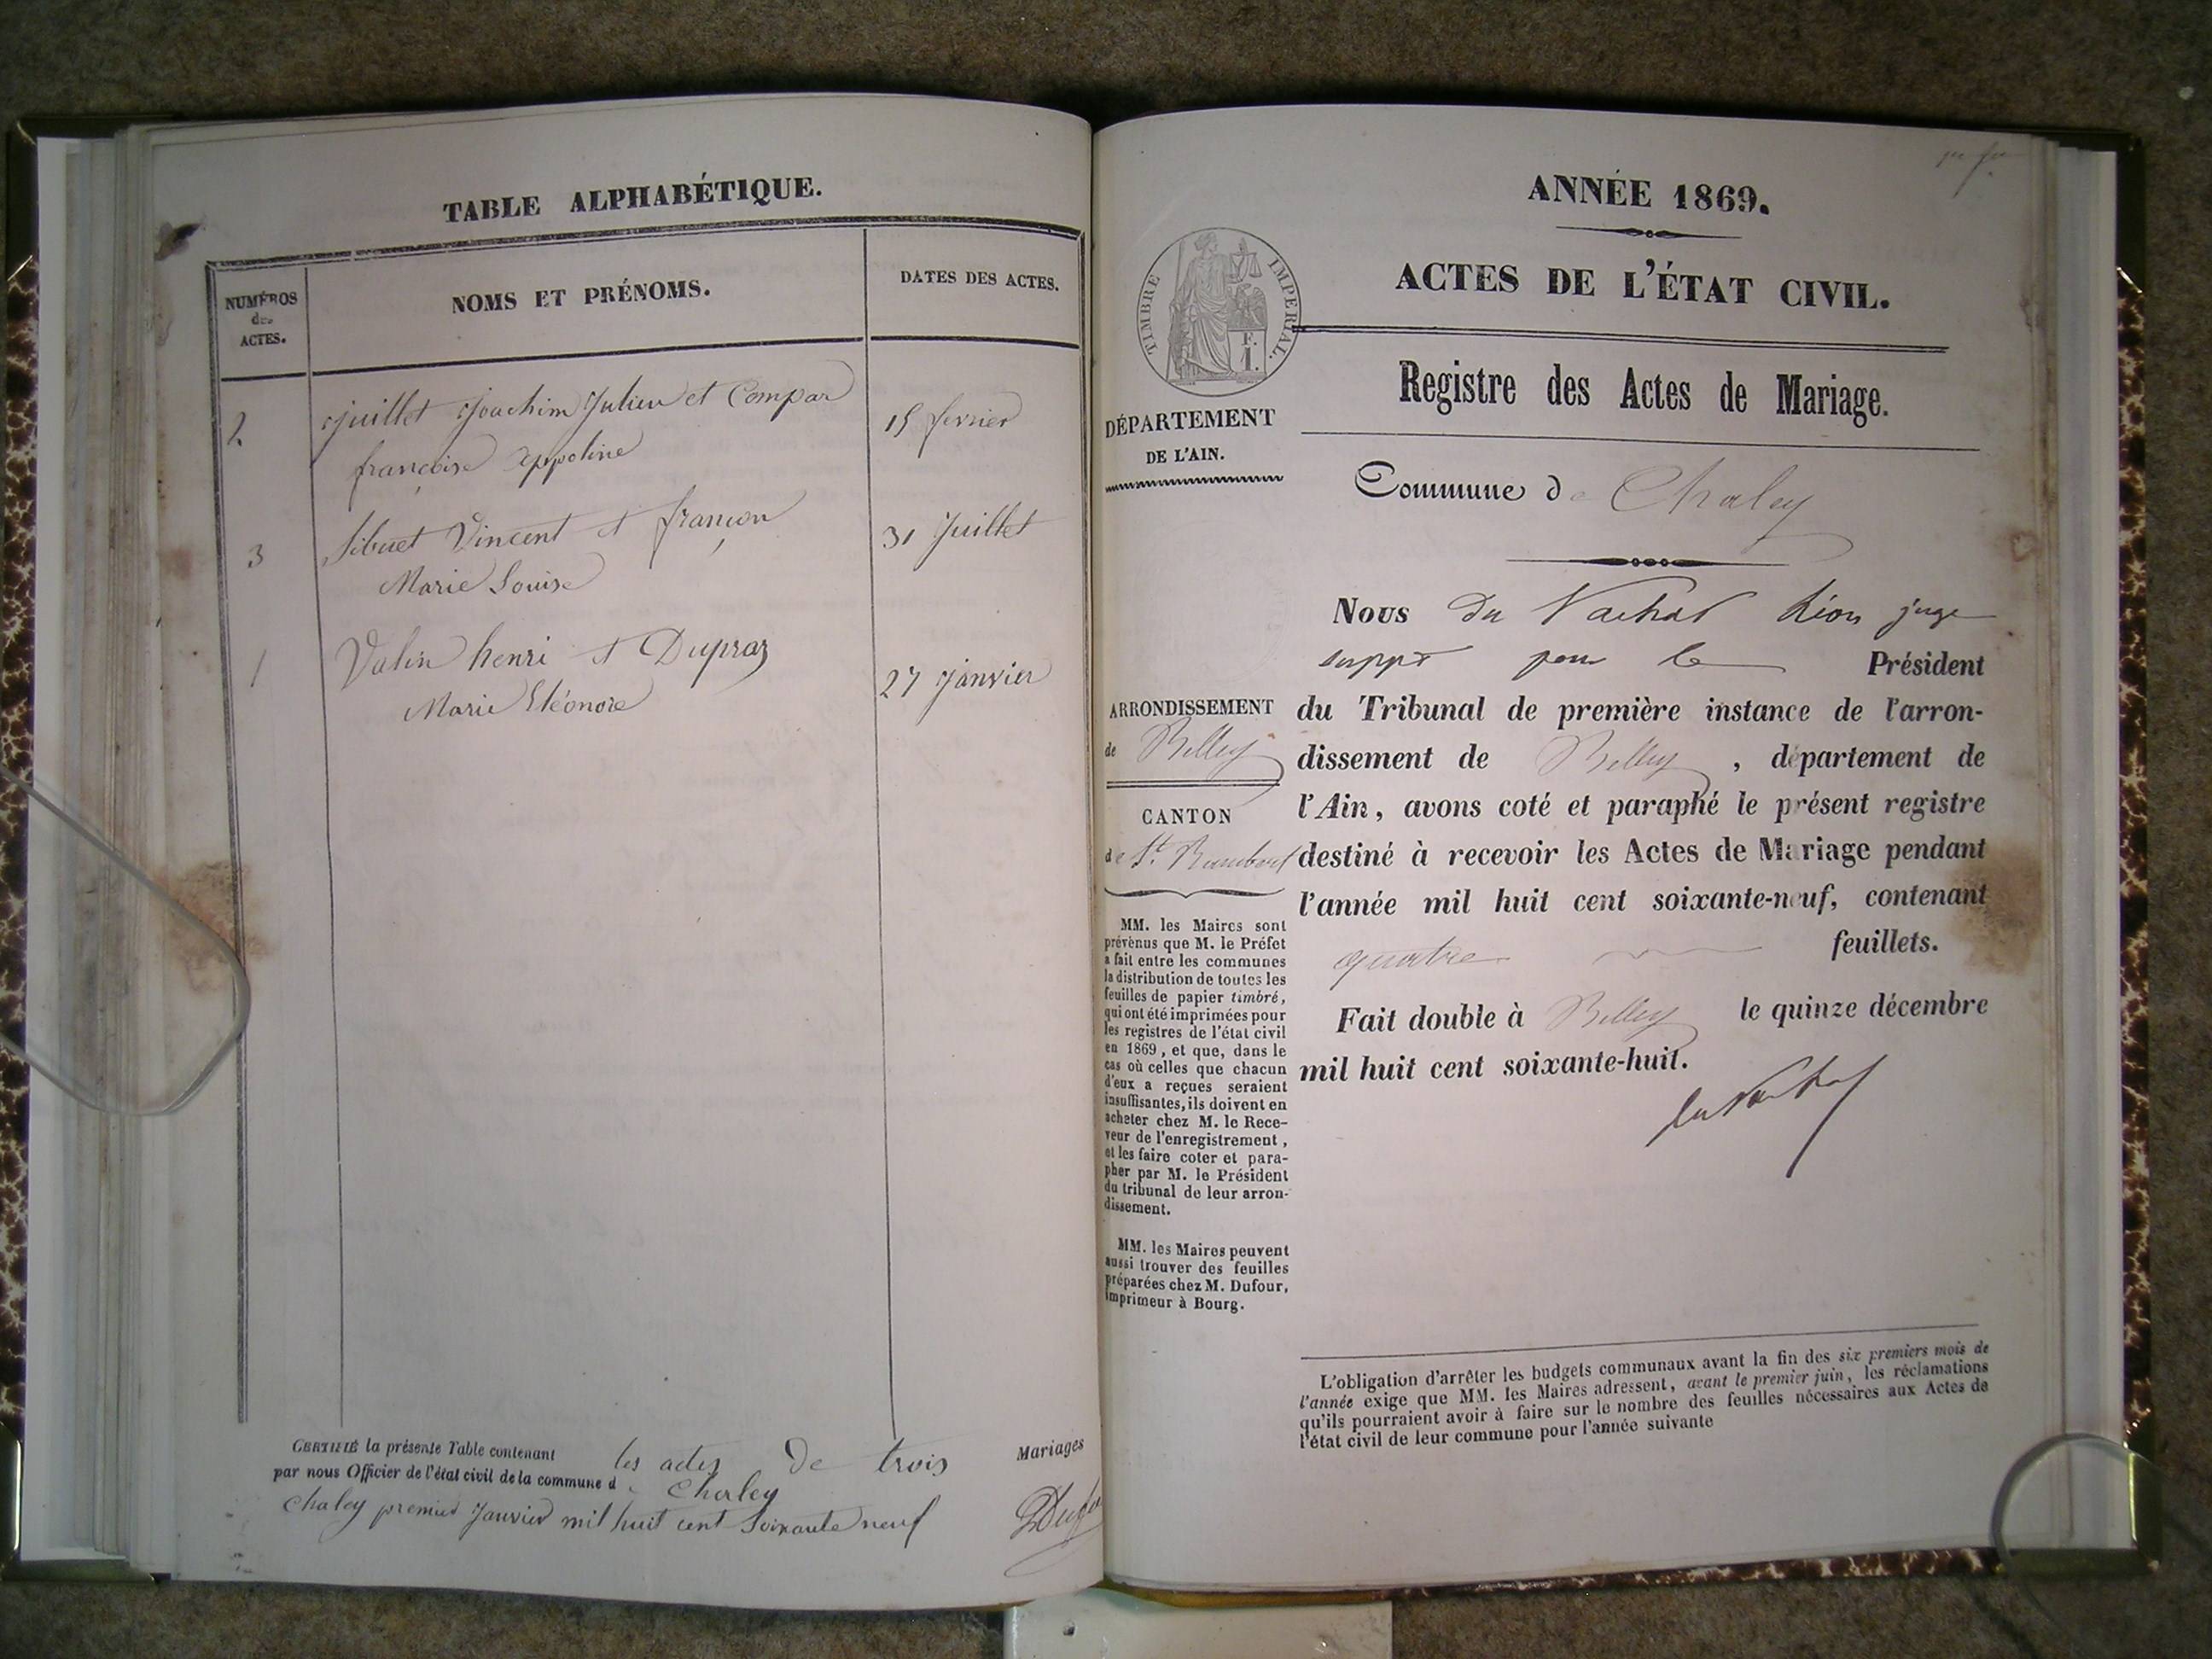 TABLE ALPHABÉTIQUE.
NUMÉROS
des
ACTES.
NOMS ET PRÉNOMS.
DATES DES ACTES.
2 Juillet Joachim Julien et Compar 15 fevrier
françoise Appoline
3 Sibuet Vincent et françon 31 Juillet
Marie Louise
1 Valin henri et Dupraz 27 Janvier
Marie Eléonore
CERTIFIÉ la présente Table contenant les actes de trois Mariages
par nous Officier de l'état civil de la commune de Chaley
Chaley premier Janvier mil huit cent soixante neuf
ANNÉE 1869.
ACTES DE L'ÉTAT CIVIL.
TIMBRE IMPERIAL.
F.
1.
Registre des Actes de Mariage.
DÉPARTEMENT
DE L'AIN.
Commune de Chaley
ARRONDISSEMENT
de Belley
CANTON
de St. Rambert
MM. les Maires sont
prévenus que M. le Préfet
a fait entre les communes
la distribution de toutes les
feuilles de papier timbré,
qui ont été imprimées pour
les registres de l'état civil
en 1869, et que, dans le
cas où celles que chacun
d'eux a reçues seraient
insuffisantes, ils doivent en
acheter chez M. le Rece-
veur de l'enregistrement,
et les faire coter et para-
pher par M. le Président
du tribunal de leur arron-
dissement.
MM. les Maires peuvent
aussi trouver des feuilles
préparées chez M. Dufour,
imprimeur à Bourg.
Nous du Vachat Léon juge
suppt pour le Président
du Tribunal de première instance de l'arron-
dissement de Belley, département de
l'Ain, avons coté et paraphé le présent registre
destiné à recevoir les Actes de Mariage pendant
l'année mil huit cent soixante-neuf, contenant
quatre feuillets.
Fait double à Belley le quinze décembre
mil huit cent soixante-huit.
du Vachat
L'obligation d'arrêter les budgets communaux avant la fin des six premiers mois de
l'année exige que MM. les Maires adressent, avant le premier juin, les réclamations
qu'ils pourraient avoir à faire sur le nombre des feuilles nécessaires aux Actes de
l'état civil de leur commune pour l'année suivante